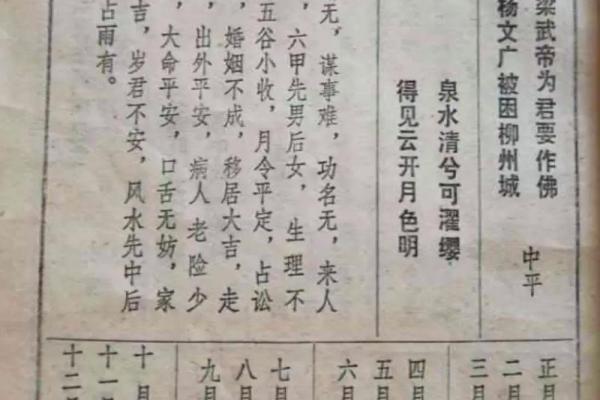 梁武帝为君要作佛
杨文广被困柳州城
中平
泉水清兮可濯缨
得见云开月色明
无，谋事难，功名无，来人
，六甲先男后女，生理不
五谷小收，月令平定，占讼
，婚姻不成，移居大吉，走
，出外平安，病人老险少
，大命平安，口舌无妨，家
吉，岁君不安，风水先中后
占雨有。
正月
二月
三月
四月
五月
六月
七月
八月
九月
十月
十一月
十二月